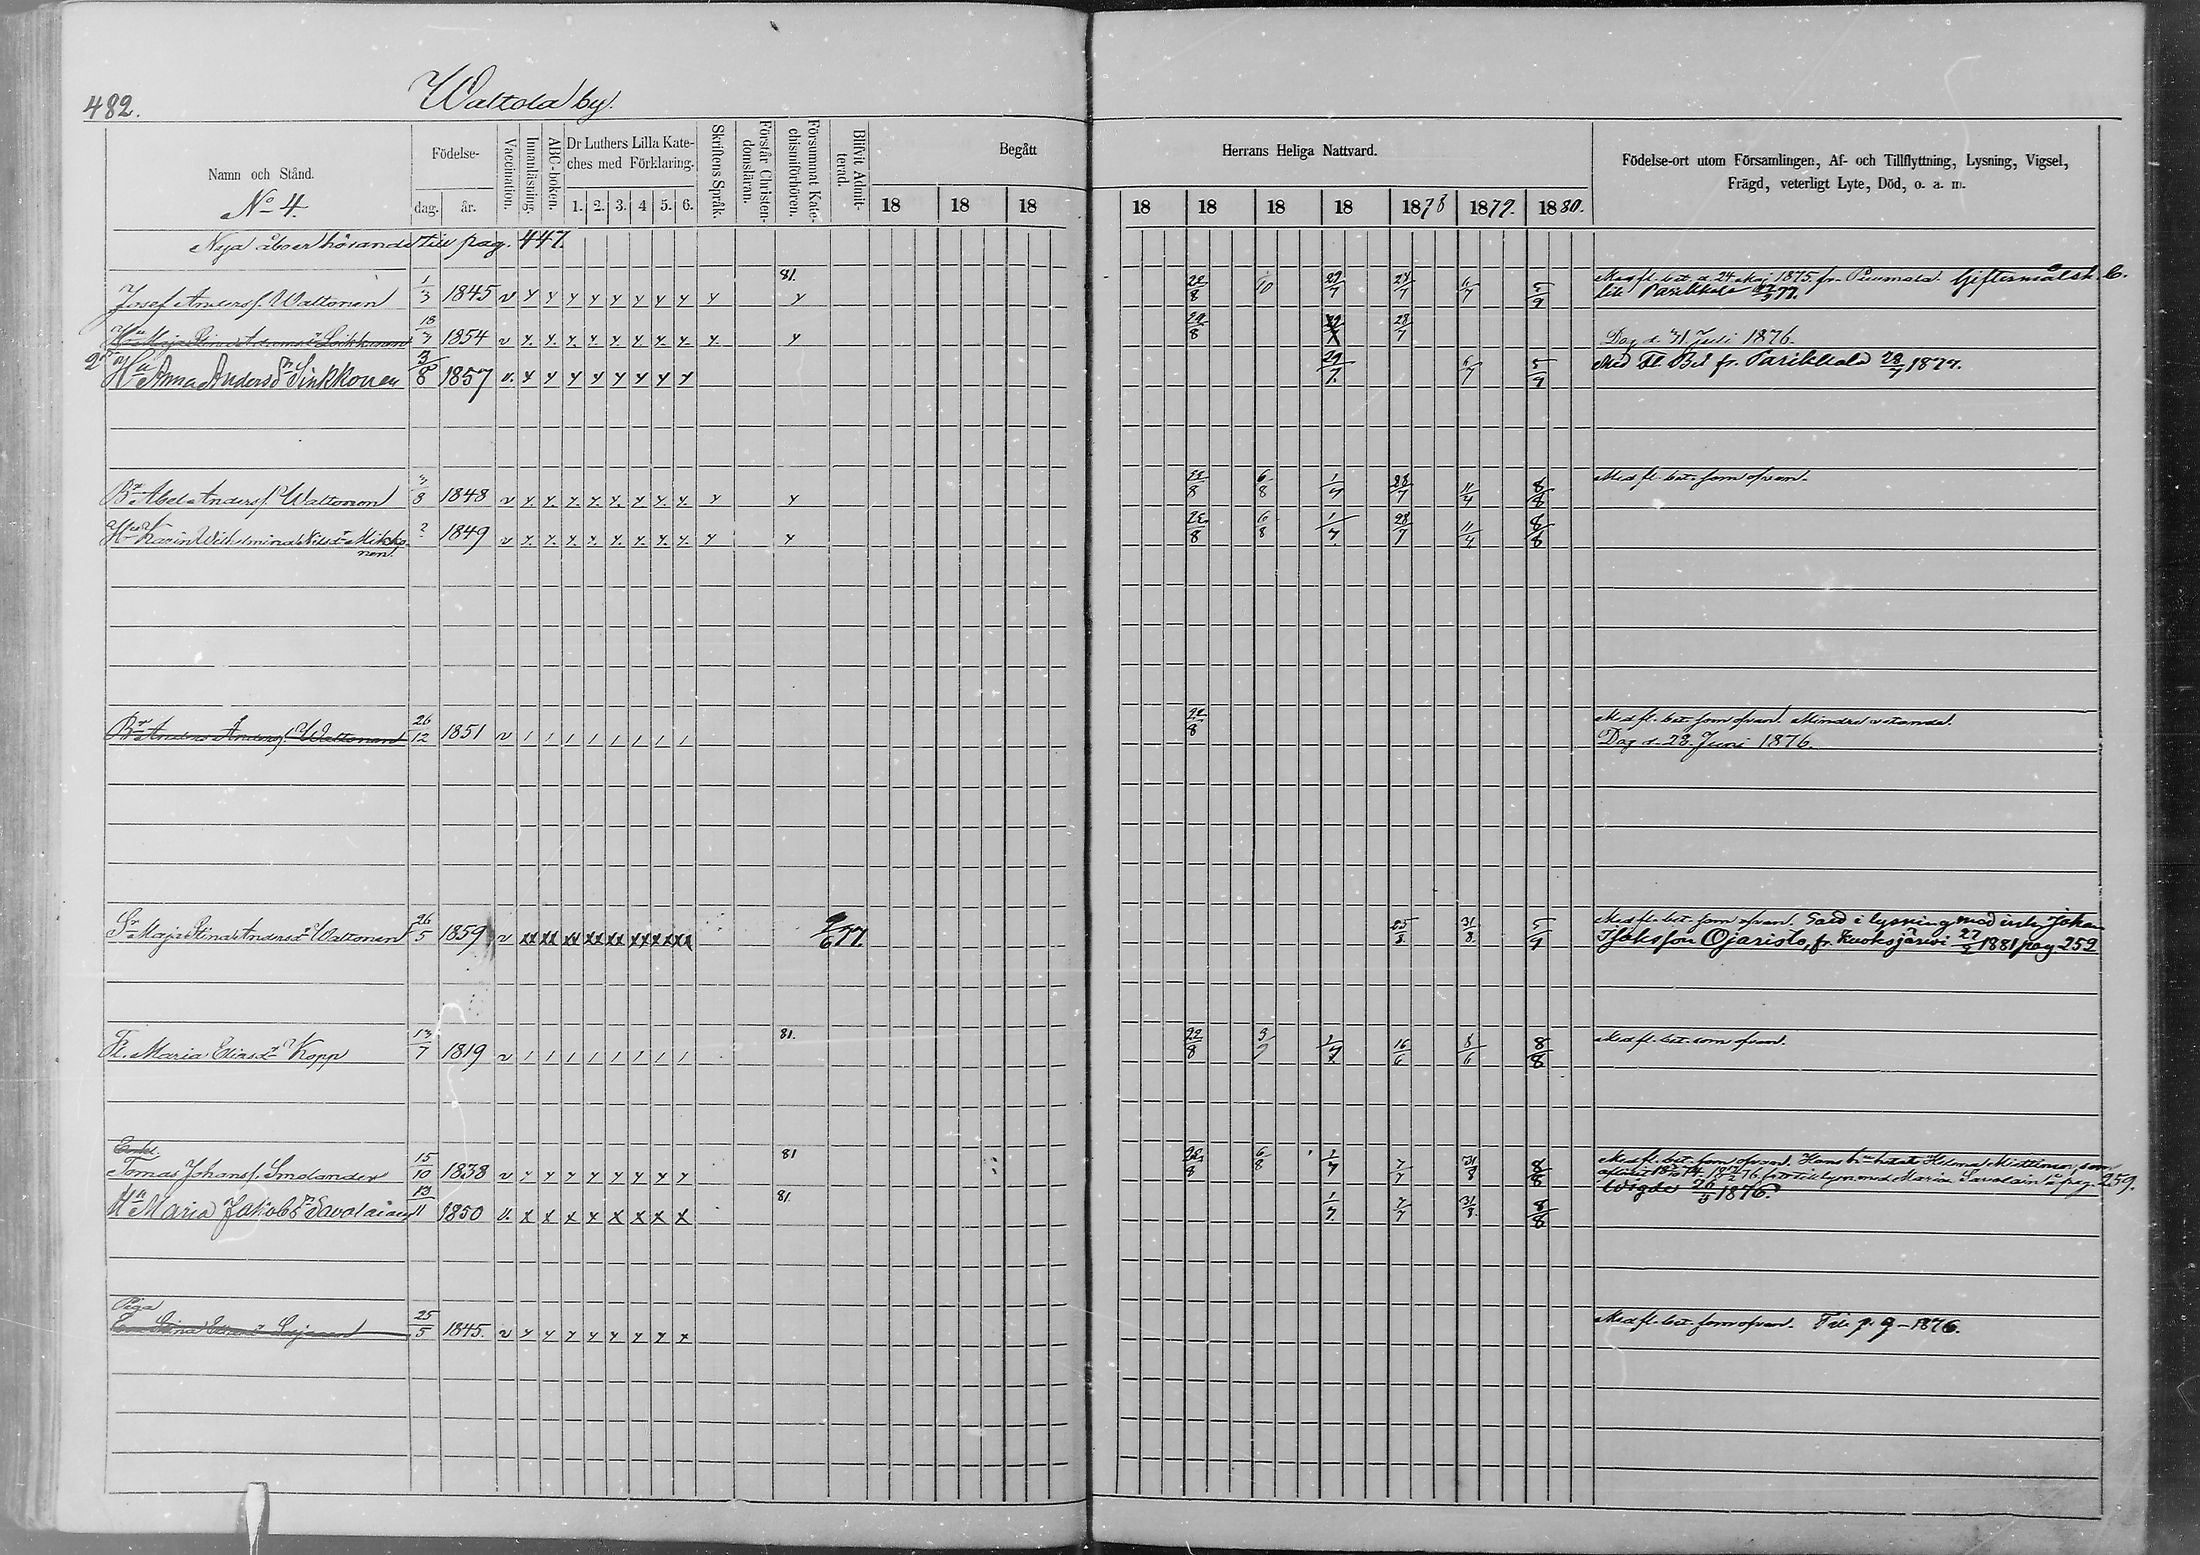 482.
Waltola by.
Namn och Stånd.
No 4.
Födelse-
dag.
år.
Vaccination.
Innanläsning.
ABC-boken.
Dr Luthers Lilla Kate-
ches med Förklaring.
1. 2. 3. 4 5. 6.
Skriftens Språk.
Förstår Christen-
domsläran.
Försummat Kate-
chismiförhören.
Blifvit Admit-
terad.
Begått
Herrans Heliga Nattvard.
18 18 18
18 18 18 18 1878 1879. 1880.
Födelse-ort utom Församlingen, Af- och Tillflyttning, Lysning, Vigsel,
Frägd, veterligt Lyte, Död, o. a. m.
Nya åboer hörande till pag. 447.
Josef Andersf. Waltonen 1/3 1845 v y y y y y y y y y 81. y 22/8 /10 29/7 24/7 6/7 5/9 Med fl. bet. d. 24 Maj 1875 fr. Puumala. Giftermålsb.
till Parikkala 77.
Hu Maja Stina 18/7 1854 v y y y y y y y y y y 29/8 28/7 Dog d. 31 Juli 1876.
2dra Hu Anna Andersdr Sinkkonen 3/8 1857 v. y y y y y y y y 29/7. 6/7 5/9 Med Fl. Bet fr. Parikkala 28/7 1877.
Br. Abel Andersf. Waltonen /8 1848 v y y y y y y y y y y 22/8 6/8 1/7 28/7 11/4 8/8 Med fl. bet. som ofvan.
Hu Karin Wilhelmina Nilsdr Mikko-
nen ? 1849 v y y y y y y y y y y 22/8 6/8 1/7. 28/7 11/4 8/8
Br. Anders Andersf. Waltonen 26/12 1851 v / / / / / / / / 22/8 Med fl. bet. som ofvan. Mindre vetande.
Dog d. 28 Juni 1876.
Sr Maja Stina Andersdr Waltonen 26/5 1859 v 9/6 77. 25/8 31/8. 5/9 Med fl. bet. som ofvan. Tard i lysning med inh. Johan
Isaksson Ojaristo, fr. Kuoksjärvi 27/2 1881 pag. 252
Maria Eliasdr Kopp 13/7 1819 v / / / / / / / / 81. 22/8 9/ 1/7 16/6 8/6 8/8 Med fl. bet. som ofvan.
Tomas Johansf. Smolander 15/10 1838 v y y y y y y y y 81 22/8 6/8 1/7 7/7 31/8 8/8 Med fl. bet. som ofvan. Hans h. hette Helena
lysn. med Maria Savolain pag. 259.
Wigde 26/5 1876.
Hu Maria Jakobsdr Savolainen 13/11 1850 v. x x x x x x x x 81. 1/7. 7/7 31/8. 8/8
Piga
25/5 1845. v y y y y y y y y Med fl. bet. som ofvan. Till p. 9 – 1876.